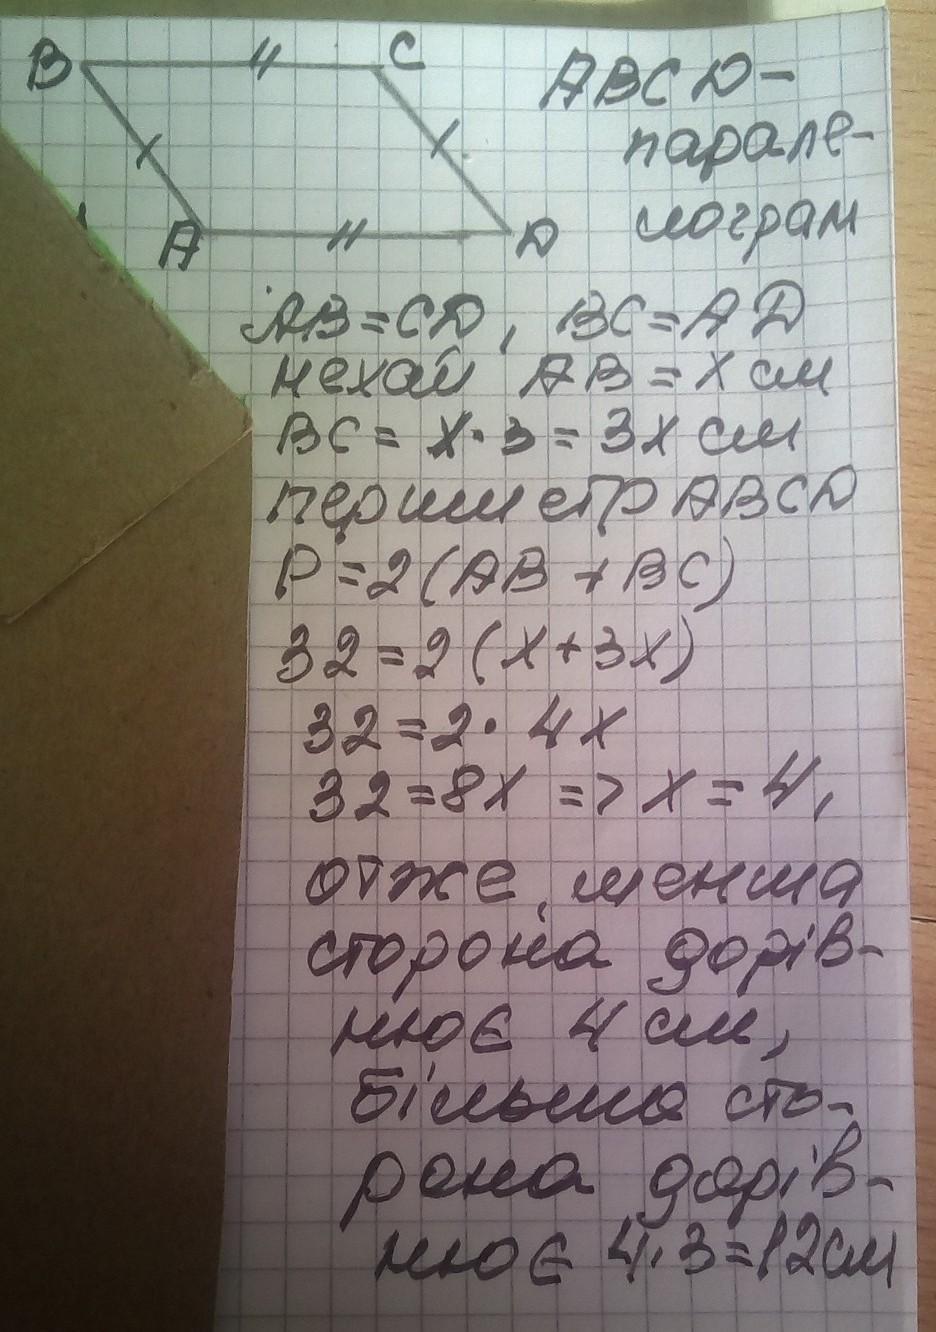 B C
A D
ABCD-
парале-
лограм
AB=CD, BC=AD
нехай AB=x см
BC= x·3=3x см
периметр ABCD
P=2(AB+BC)
32=2(x+3x)
32=2·4x
32=8x => x=4,
отже, менша
сторона дорів-
нює 4 см,
більша сто-
рона дорів-
нює 4·3=12см